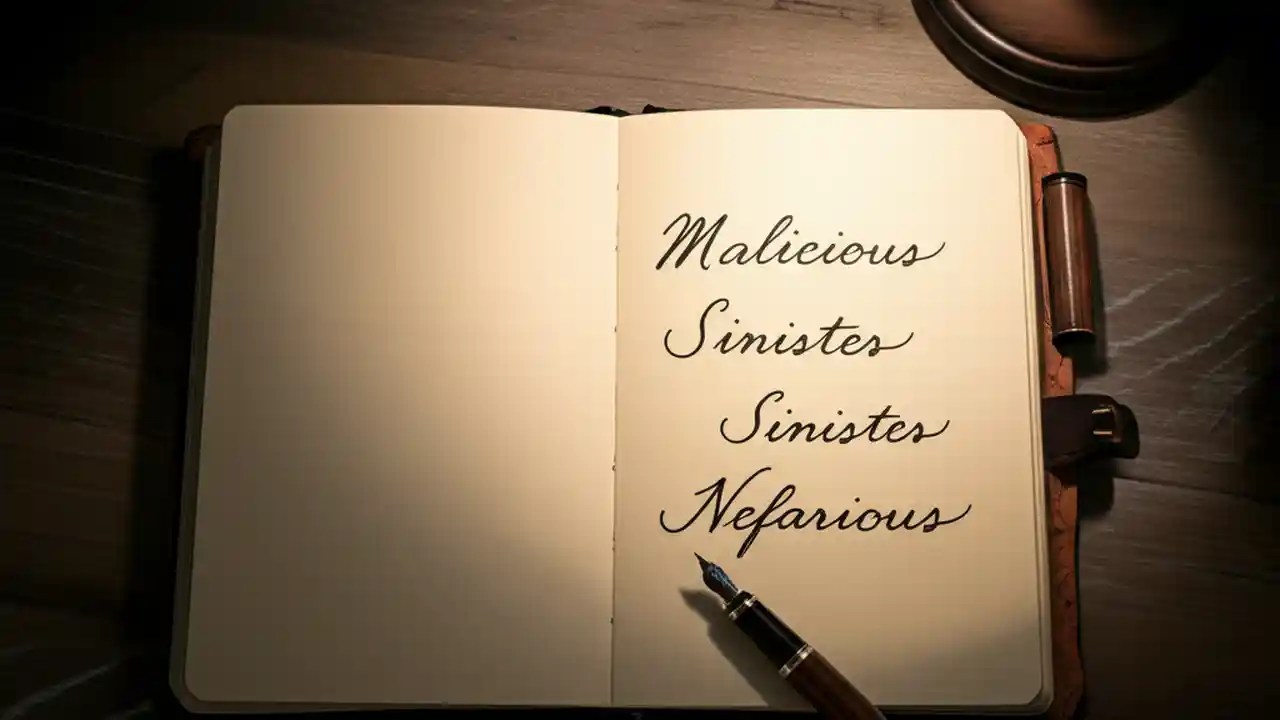 Malicious
Sinistes
Sinistes
Nefarious